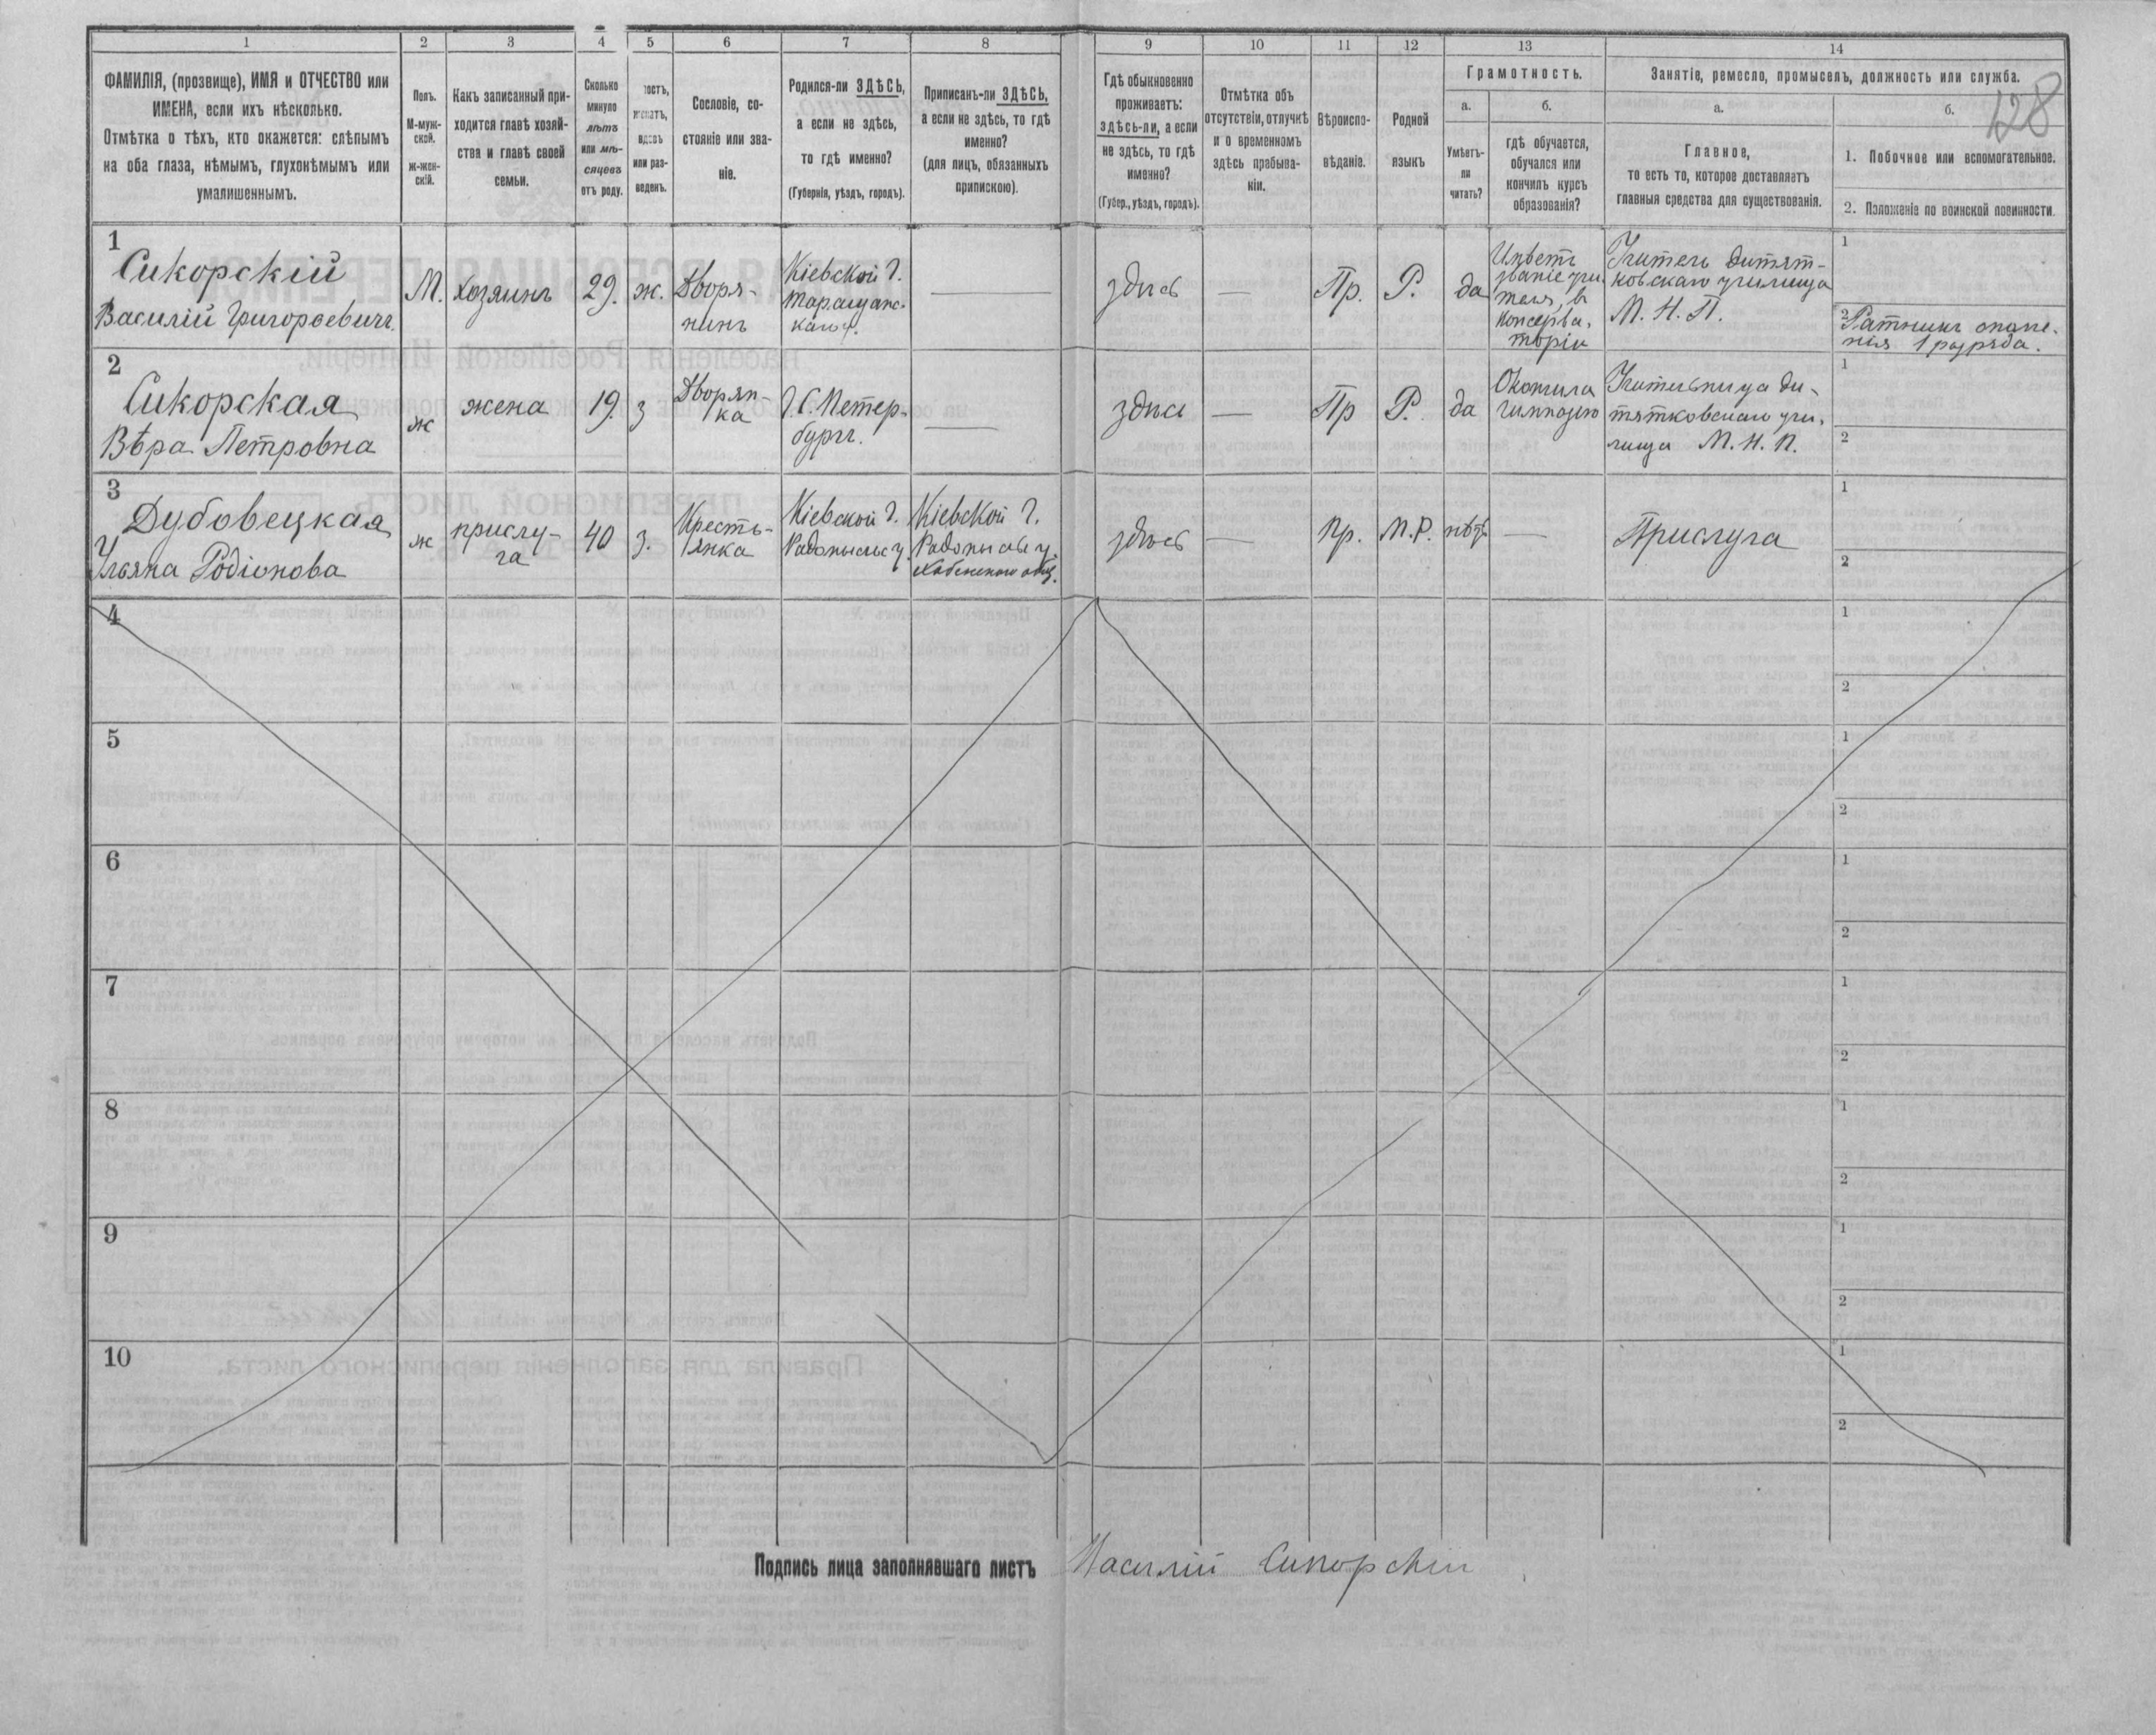 1 2 3 4 5 6 7 8 9 10 11 12 13 14
128
ФАМИЛІЯ, (прозвище), ИМЯ и ОТЧЕСТВО или
ИМЕНА, если ихъ нѣсколько.
Отмѣтка о тѣхъ, кто окажется: слѣпымъ
на оба глаза, нѣмымъ, глухонѣмымъ или
умалишеннымъ.
Полъ.
М-муж-
ской.
ж-жен-
скій.
Какъ записанный при-
ходится главѣ хозяй-
ства и главѣ своей
семьи.
Сколько
минуло
лѣтъ
или мѣ-
сяцевъ
отъ роду.
тостъ,
женатъ,
вдовъ
или раз-
веденъ.
Сословіе, со-
стояніе или зва-
ніе.
Родился-ли ЗДѢСЬ,
а если не здѣсь,
то гдѣ именно?
(Губернія, уѣздъ, городъ).
Приписанъ-ли ЗДѢСЬ,
а если не здѣсь, то гдѣ
именно?
(для лицъ, обязанныхъ
припискою).
Гдѣ обыкновенно
проживаетъ:
здѣсь-ли, а если
не здѣсь, то гдѣ
именно?
(Губер., уѣздъ, городъ).
Отмѣтка объ
отсутствіи, отлучкѣ
и о временномъ
здѣсь пребыва-
ніи.
Вѣроиспо-
вѣданіе.
Родной
языкъ
Грамотность.
а.
Умѣетъ-
ли
читать?
б.
гдѣ обучается,
обучался или
кончилъ курсъ
образованія?
Занятіе, ремесло, промыселъ, должность или служба.
а.
Главное,
то есть то, которое доставляетъ
главныя средства для существованія.
б.
1. Побочное или вспомогательное.
2. Положеніе по воинской повинности.
1
Сикорскій
Василій Григорьевичъ.
М.
Хозяинъ
29.
ж.
Дворя-
нинъ
Кіевской г.
Таращанс-
каго у.
здѣсь
—
Пр.
Р.
да
Имѣетъ
званіе учи
теля, в
консерва.
торіи
Учитель Дитят-
ковскаго училища
М. Н. П.
1
2
Ратникъ ополче.
нія 1 разряда.
2
Сикорская
Вѣра Петровна
ж
жена
19.
з
Дворян-
ка
Г. С. Петер-
бургъ.
здѣсь
—
Пр
Р.
да
Окончила
гимназію
Учительница Ди-
тятковскаго учи.
лища М. Н. П.
1
2
3
Дубовецкая
Ульяна Родіонова
ж
прислу-
га
40
з.
Кресть-
янка
Кіевской г.
Радомысльс у.
Кіевской г.
Радомысльс у.
здѣсь
—
Пр.
М.Р.
нѣтъ
—
Прислуга
1
2
4
1
2
5
1
2
6
1
2
7
1
2
8
1
2
9
1
2
10
1
2
Подпись лица заполнявшаго листъ Василій Сикорскій